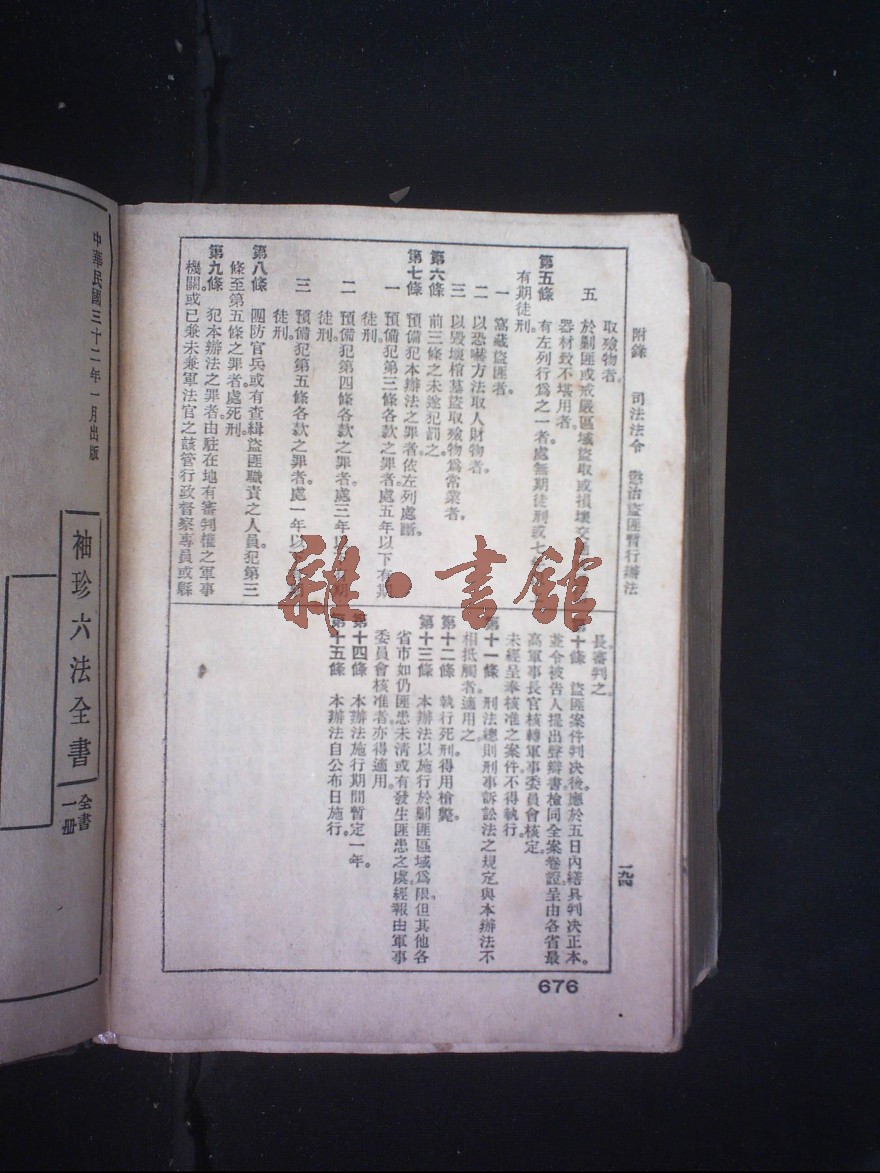 附錄　司法法令　懲治盜匪暫行辦法
一九四
取殮物者。
五　於剿匪或戒嚴區域盜取或損壞交
器材致不堪用者。
第五條　有左列行爲之一者處無期徒刑或七
有期徒刑。
一　窩藏盜匪者。
二　以恐嚇方法取人財物者。
三　以毀壞棺墓盜取殮物爲常業者。
第六條　前三條之未遂犯罰之。
第七條　預備犯本辦法之罪者依左列處斷。
一　預備犯第三條各款之罪者處五年以下有期
徒刑。
二　預備犯第四條各款之罪者處三年以期
徒刑。
三　預備犯第五條各款之罪者處一年以下
徒刑。
第八條　團防官兵或有查緝盜匪職責之人員犯第三
條至第五條之罪者處死刑。
第九條　犯本辦法之罪者由駐在地有審判權之軍事
機關或已兼未兼軍法官之該管行政督察專員或縣
長審判之。
第十條　盜匪案件判決後應於五日內繕具判決正本。
並令被告人提出聲辯書檢同全案卷證呈由各省最
高軍事長官核轉軍事委員會核定。
未經呈奉核准之案件不得執行。
第十一條　刑法總則刑事訴訟法之規定與本辦法不
相抵觸者適用之。
第十二條　執行死刑得用槍斃。
第十三條　本辦法以施行於剿匪區域爲限但其他各
省市如仍匪患未清或有發生匪患之虞經報由軍事
委員會核准者亦得適用。
第十四條　本辦法施行期間暫定一年。
第十五條　本辦法自公布日施行。
676
中華民國三十二年一月出版
袖珍六法全書
全書一冊
雜·書館